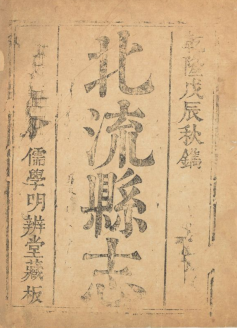 乾隆戊辰秋鐫
北流縣志
儒學明辨堂藏板